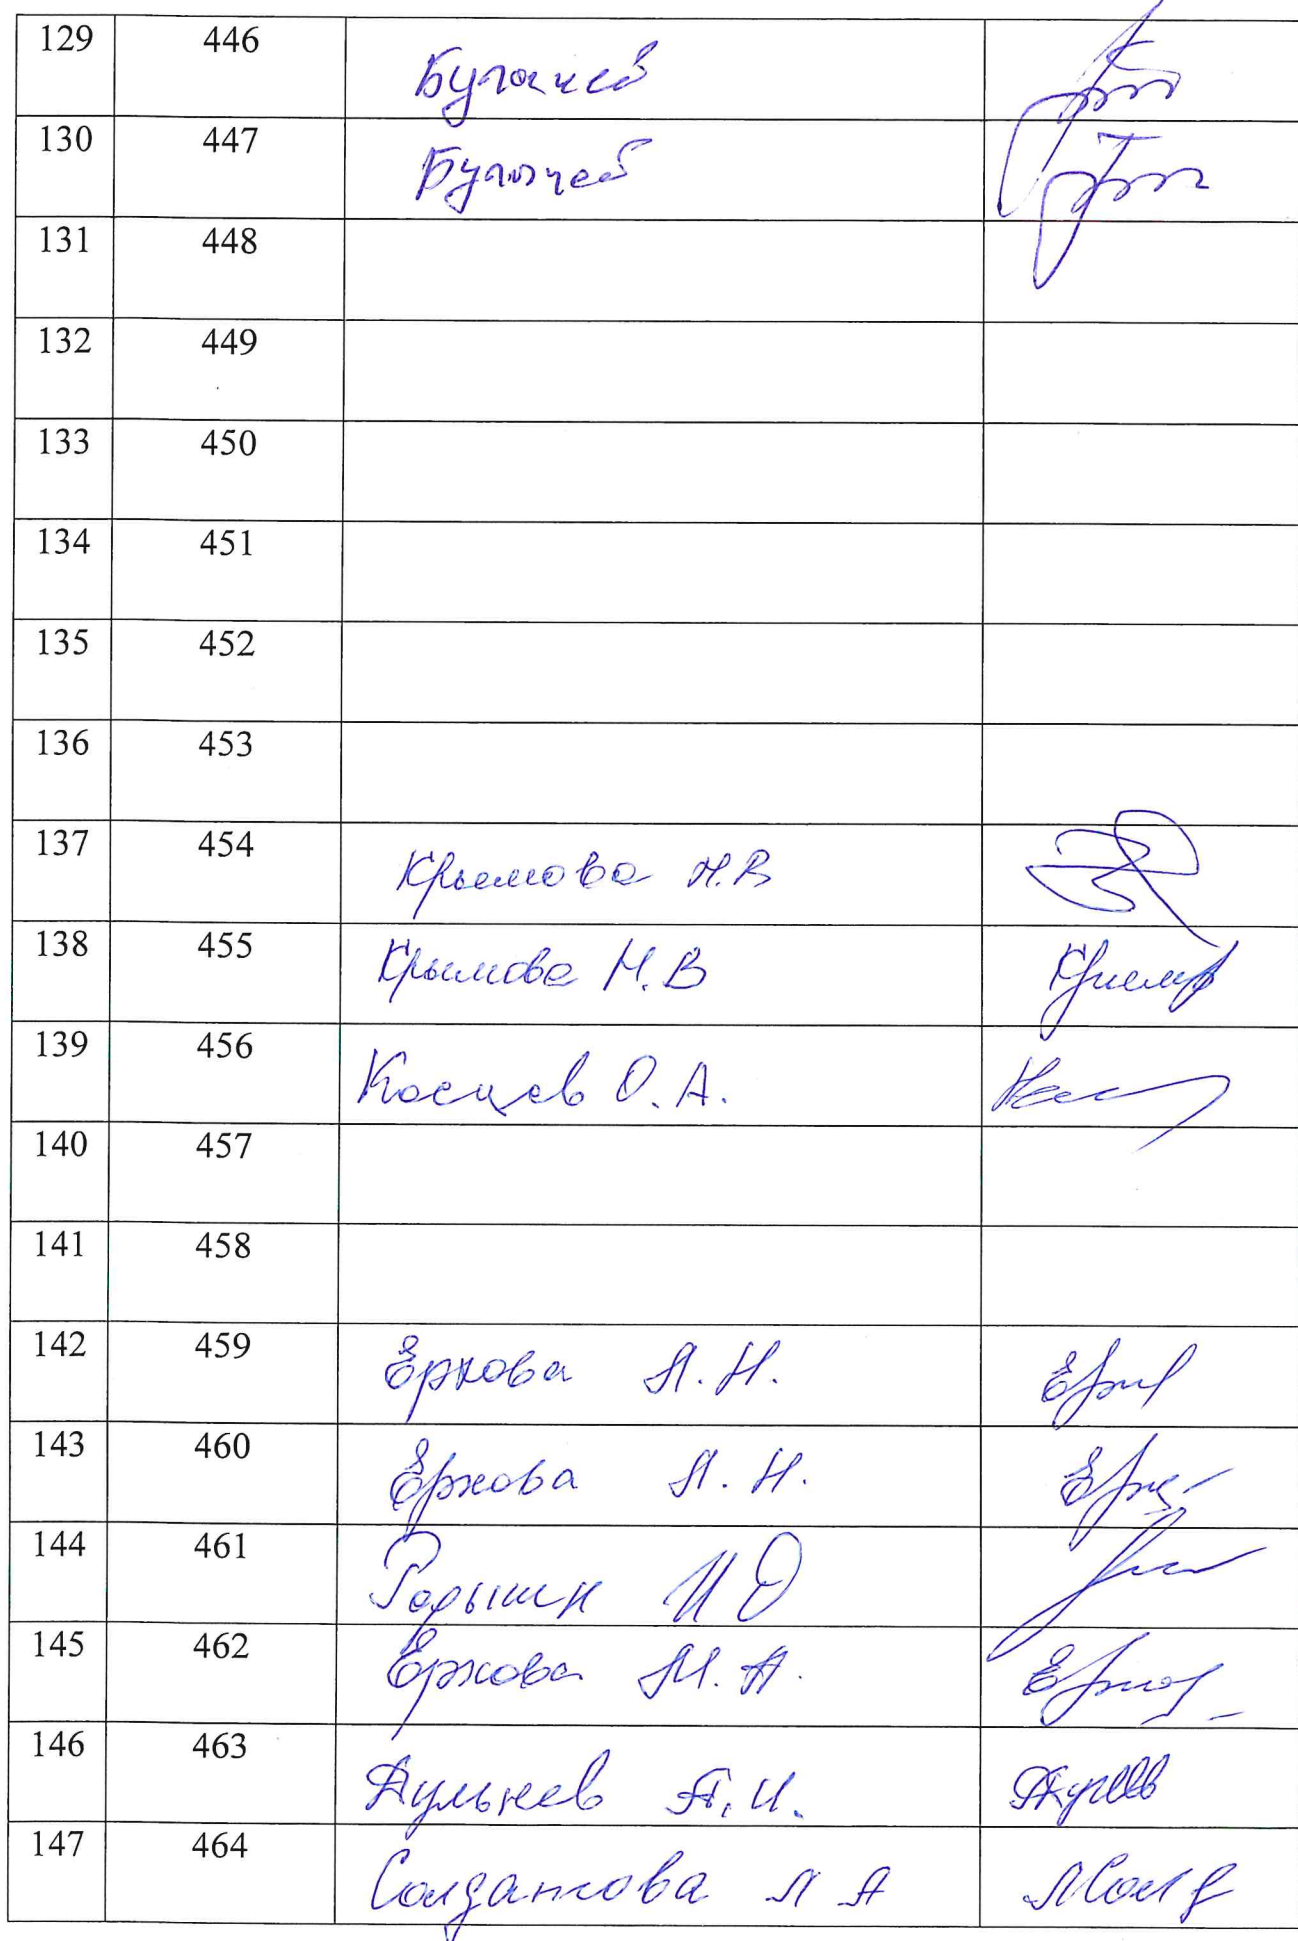 129 446 Бугачев
130 447 Бугачев
131 448
132 449
133 450
134 451
135 452
136 453
137 454 Крымова Н.В
138 455 Крымова Н.В
139 456 Косцев О.А.
140 457
141 458
142 459 Ержова Л.Н.
143 460 Ержова Л.Н.
144 461 И О
145 462 Ержова М.А.
146 463 Дульнев А.И.
147 464 Солданова Л А